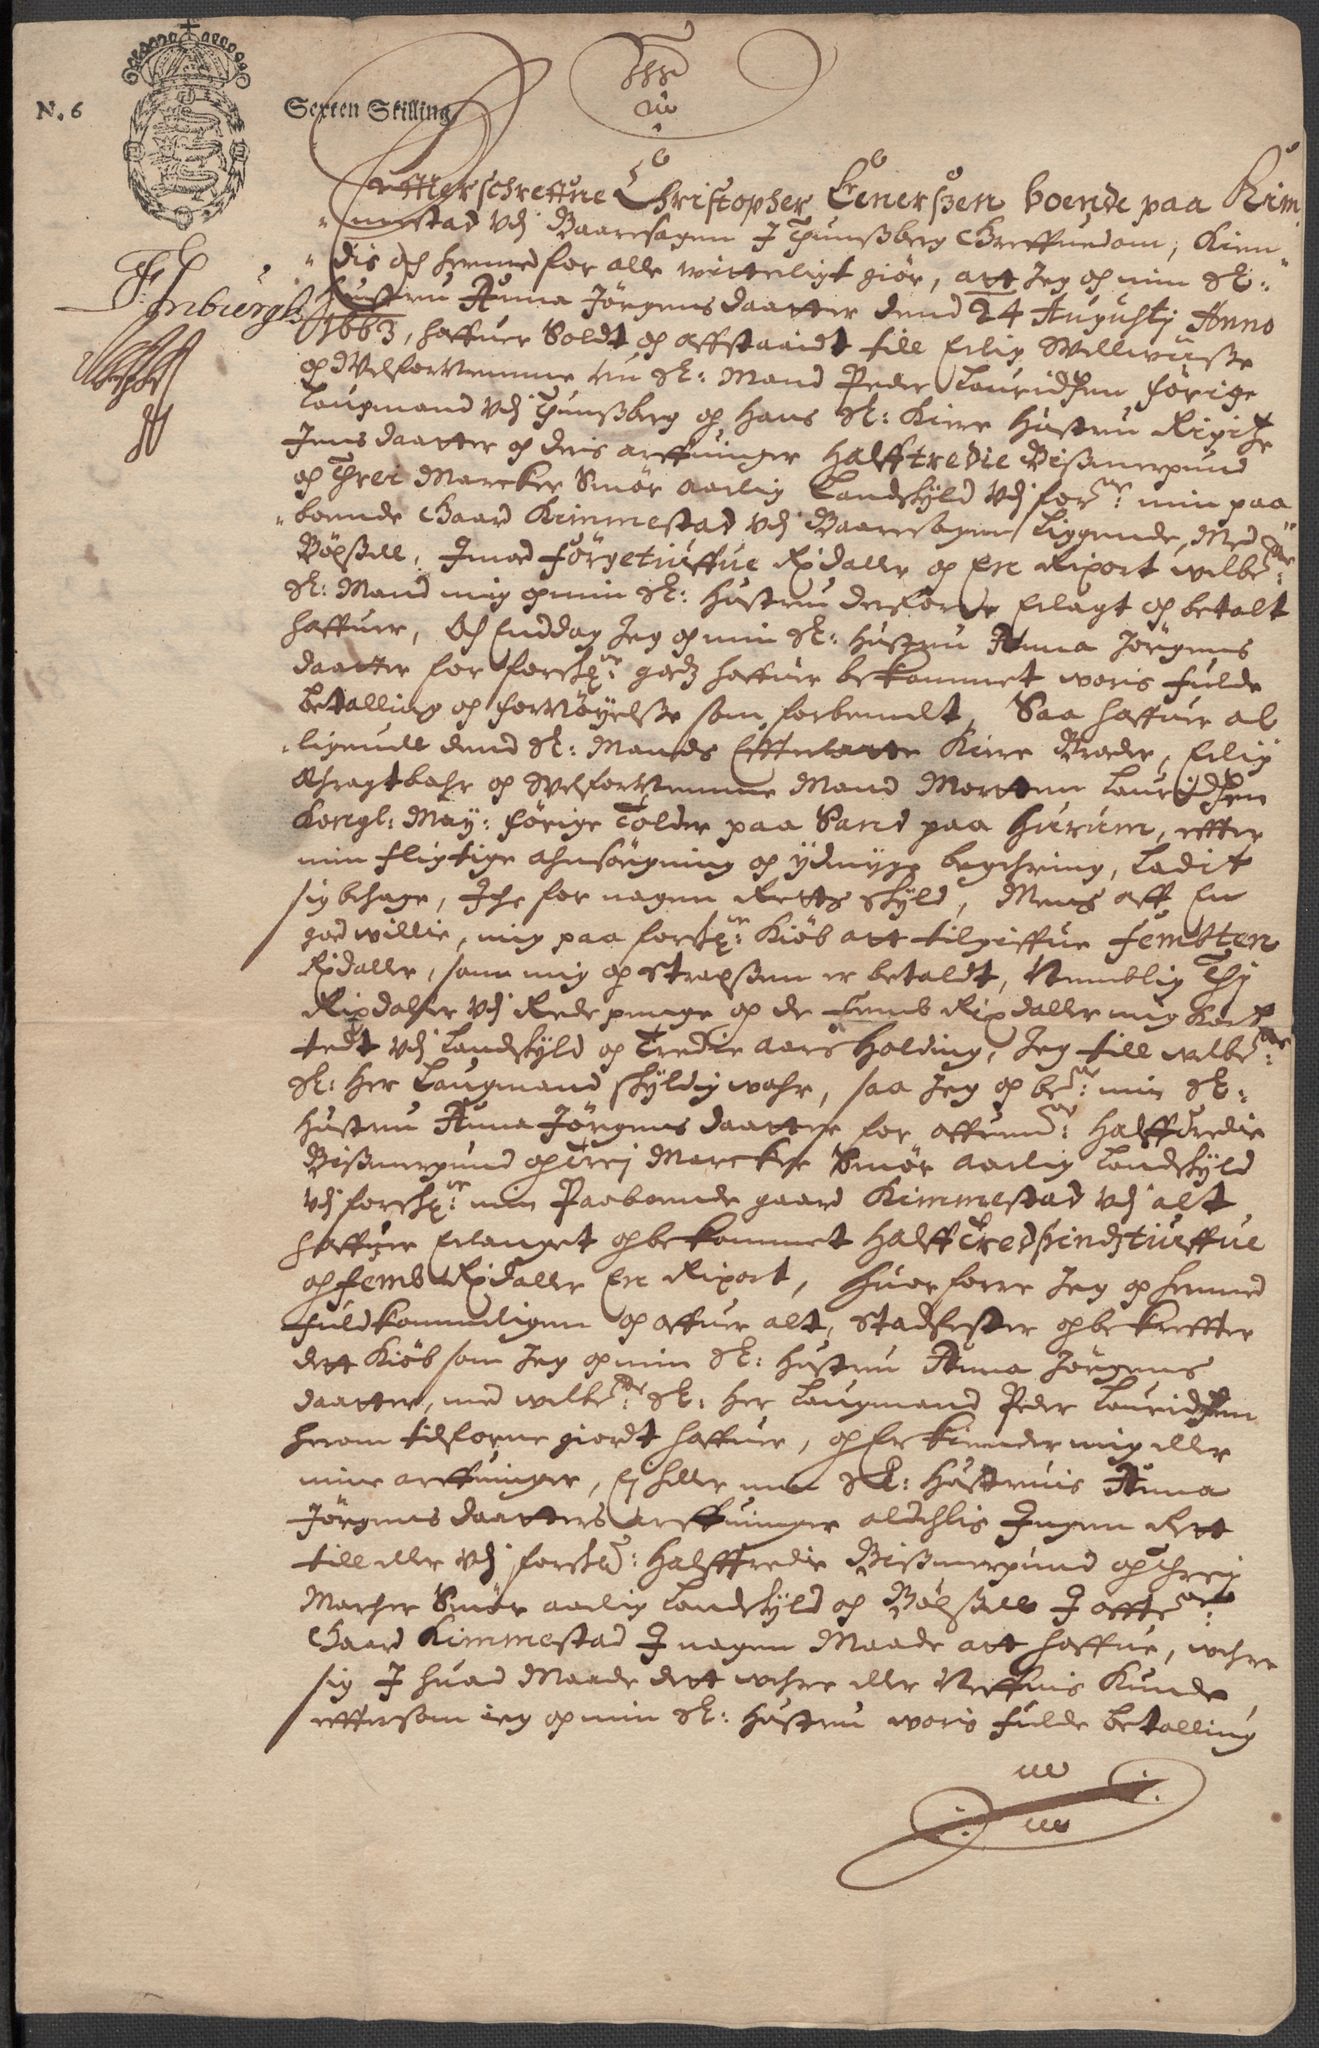 N. 6
Sexten Skilling
Effterschreffne Christopher Einerßen boende paa Kim
mestad vdj Baaresogen J Thunßberg Greffuedom, Kien
dis och hermed for alle witterligt giør, att Jeg och min Sl:
Hustru Anna Jørgens daatter dend 24 Augustj Anno
F: Jnburgh
1663, haffuer Soldt och affstaaidt till Erlig Wellwiiße
og Welfornemme nu Sl: Mand Peder Lauridtzen førige
Laugmand vdj Thunßberg og hans Sl: Kiere Hustru
Jens daatter og deris arffuinger Halfftredie Bißmerpund
och Threi Marcker Smør aarlig Landskyld vdj for:ne min paa
boende Gaard Kimmestad vdj Baaresogen liggende, Med
Bøxsell, Jmod Førgetiuffue Rixdaller og En Rixort welb:te
Sl: Mand mig og min Sl: Hustru derfore Erlagt og betalt
haffuer, Och Enddog Jeg og min Sl: Hustru Anna Jørgens
daatter for forsk:ne godz haffuer bekommet woris fulde
betalling og fornøyelse som forbemelt, Saa haffuer al
ligeuell dend Sl: Mands Effterlatte Kiere Broder, Erlig
Achragtbahr og Welfornemme Mand Morten Lauridtzen
Kongl: May: førige Tolder paa Sand paa Hurum, effter
min fligtige ahnsøgning og ydmyge begehring, ladit
sig behage, Iche for nogen Retts skyld, Mens aff En
god willie, mig paa forsk:ne Kiøb att tilgiffue Fembten
Rixdaller, som mig og strax er betaldt, Nemblig Thj
Rixdaller vdj Rede penge og de Femb Rixdaller mig
tedt vdj Landskyld og Tredie aars Holding, Jeg till welb:te
Sl: Her Laugmand skyldig wahr, saa Jeg og be:te min Sl:
Hustru Anna Jørgens daatter for Halfftredie
Bißmerpund og trej Marcker Smør aarlig Landskyld
vdj forsk:ne min Paaboende gaard Kimmestad vdj alt
haffuer Erlanget og bekommet Halfftredsindztiuffue
och femb Rixdaller En Rixort, Huorforre Jeg og hermed
fuldkommeligen og offuer alt, Stadfester og bekreffter
dett Kiøb som Jeg og min Sl: Hustru Anna Jørgens
daatter, med welb:te Sl: Her Laugmand Peder Lauridtzen
herom tilforne giordt haffuer, og Er Kiender mig eller
mine arffuinger, Ej heller min Sl: Hustruis Anna
Jørgens daatters arffuinger aldelis Jngen Rett
till eller vdj forsk:ne Halfftredie Bißmerpund og Threj
Marcher Smør aarlig Landskyld och Bøxsell J
Gaard Kimmestad J nogen Maade att haffue, wehre
sig J huad Maade dett wehre eller Neffnis Kunde
effter som ieg og min Sl: Hustru woris fulde betalling